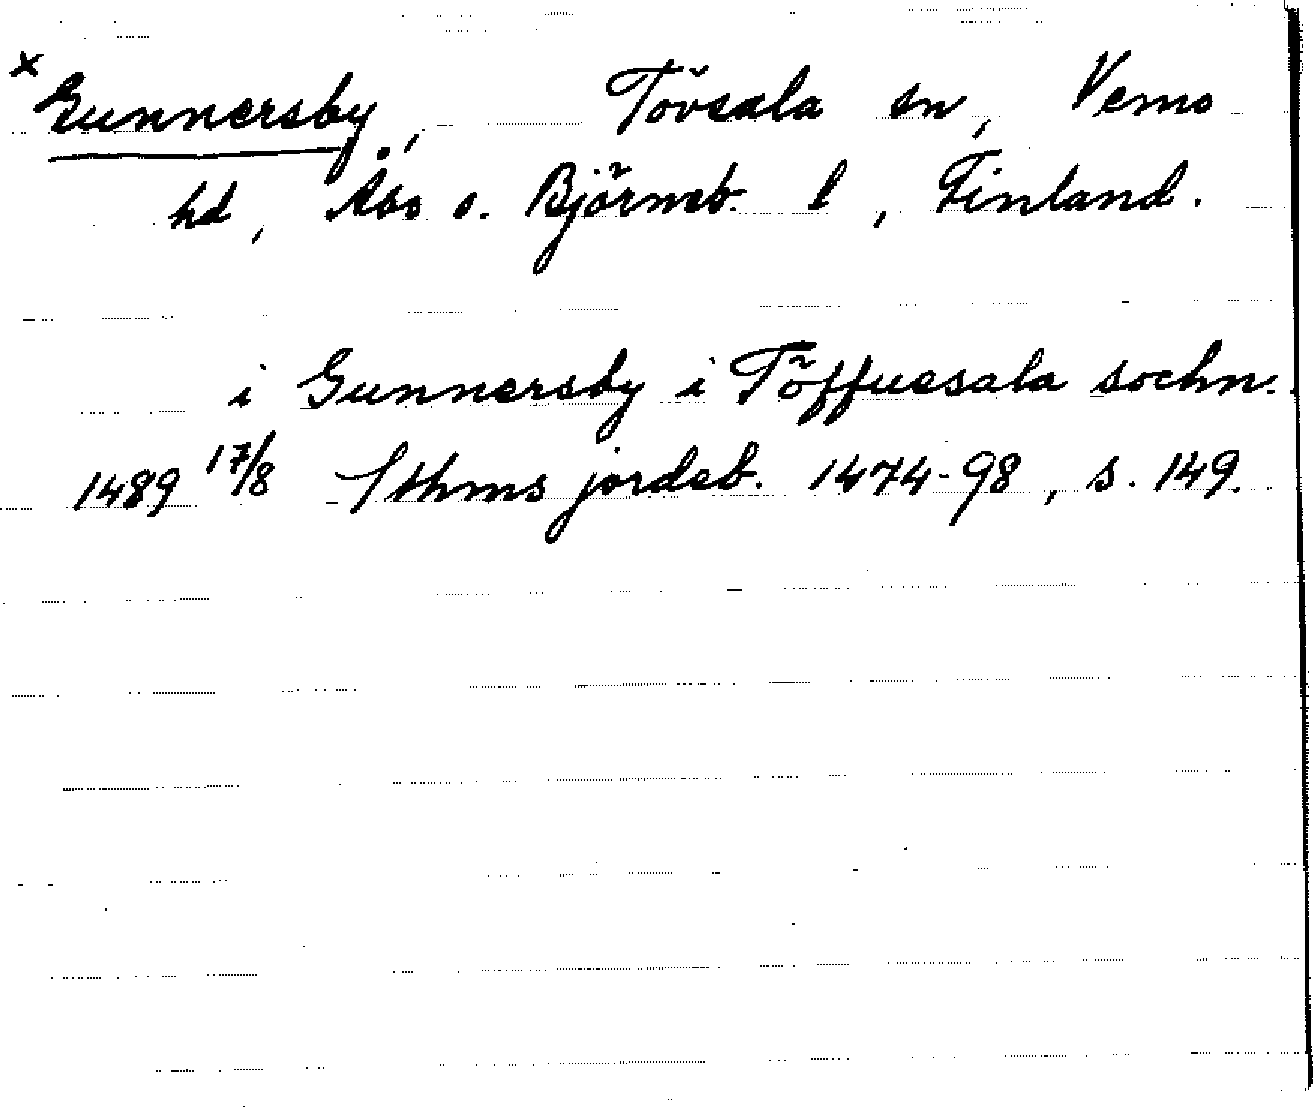 × Gunnersby, Tövsala sn, Vemo
hd, Åbo o. Björneb. l, Finland.
i Gunnersby i Töffuesala sochn.
1489 17/8 Sthms jordeb. 1474-98, s. 149.